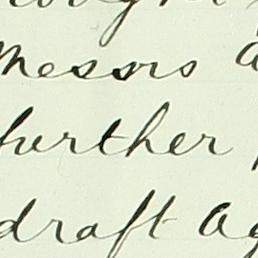 Messrs
further
draft